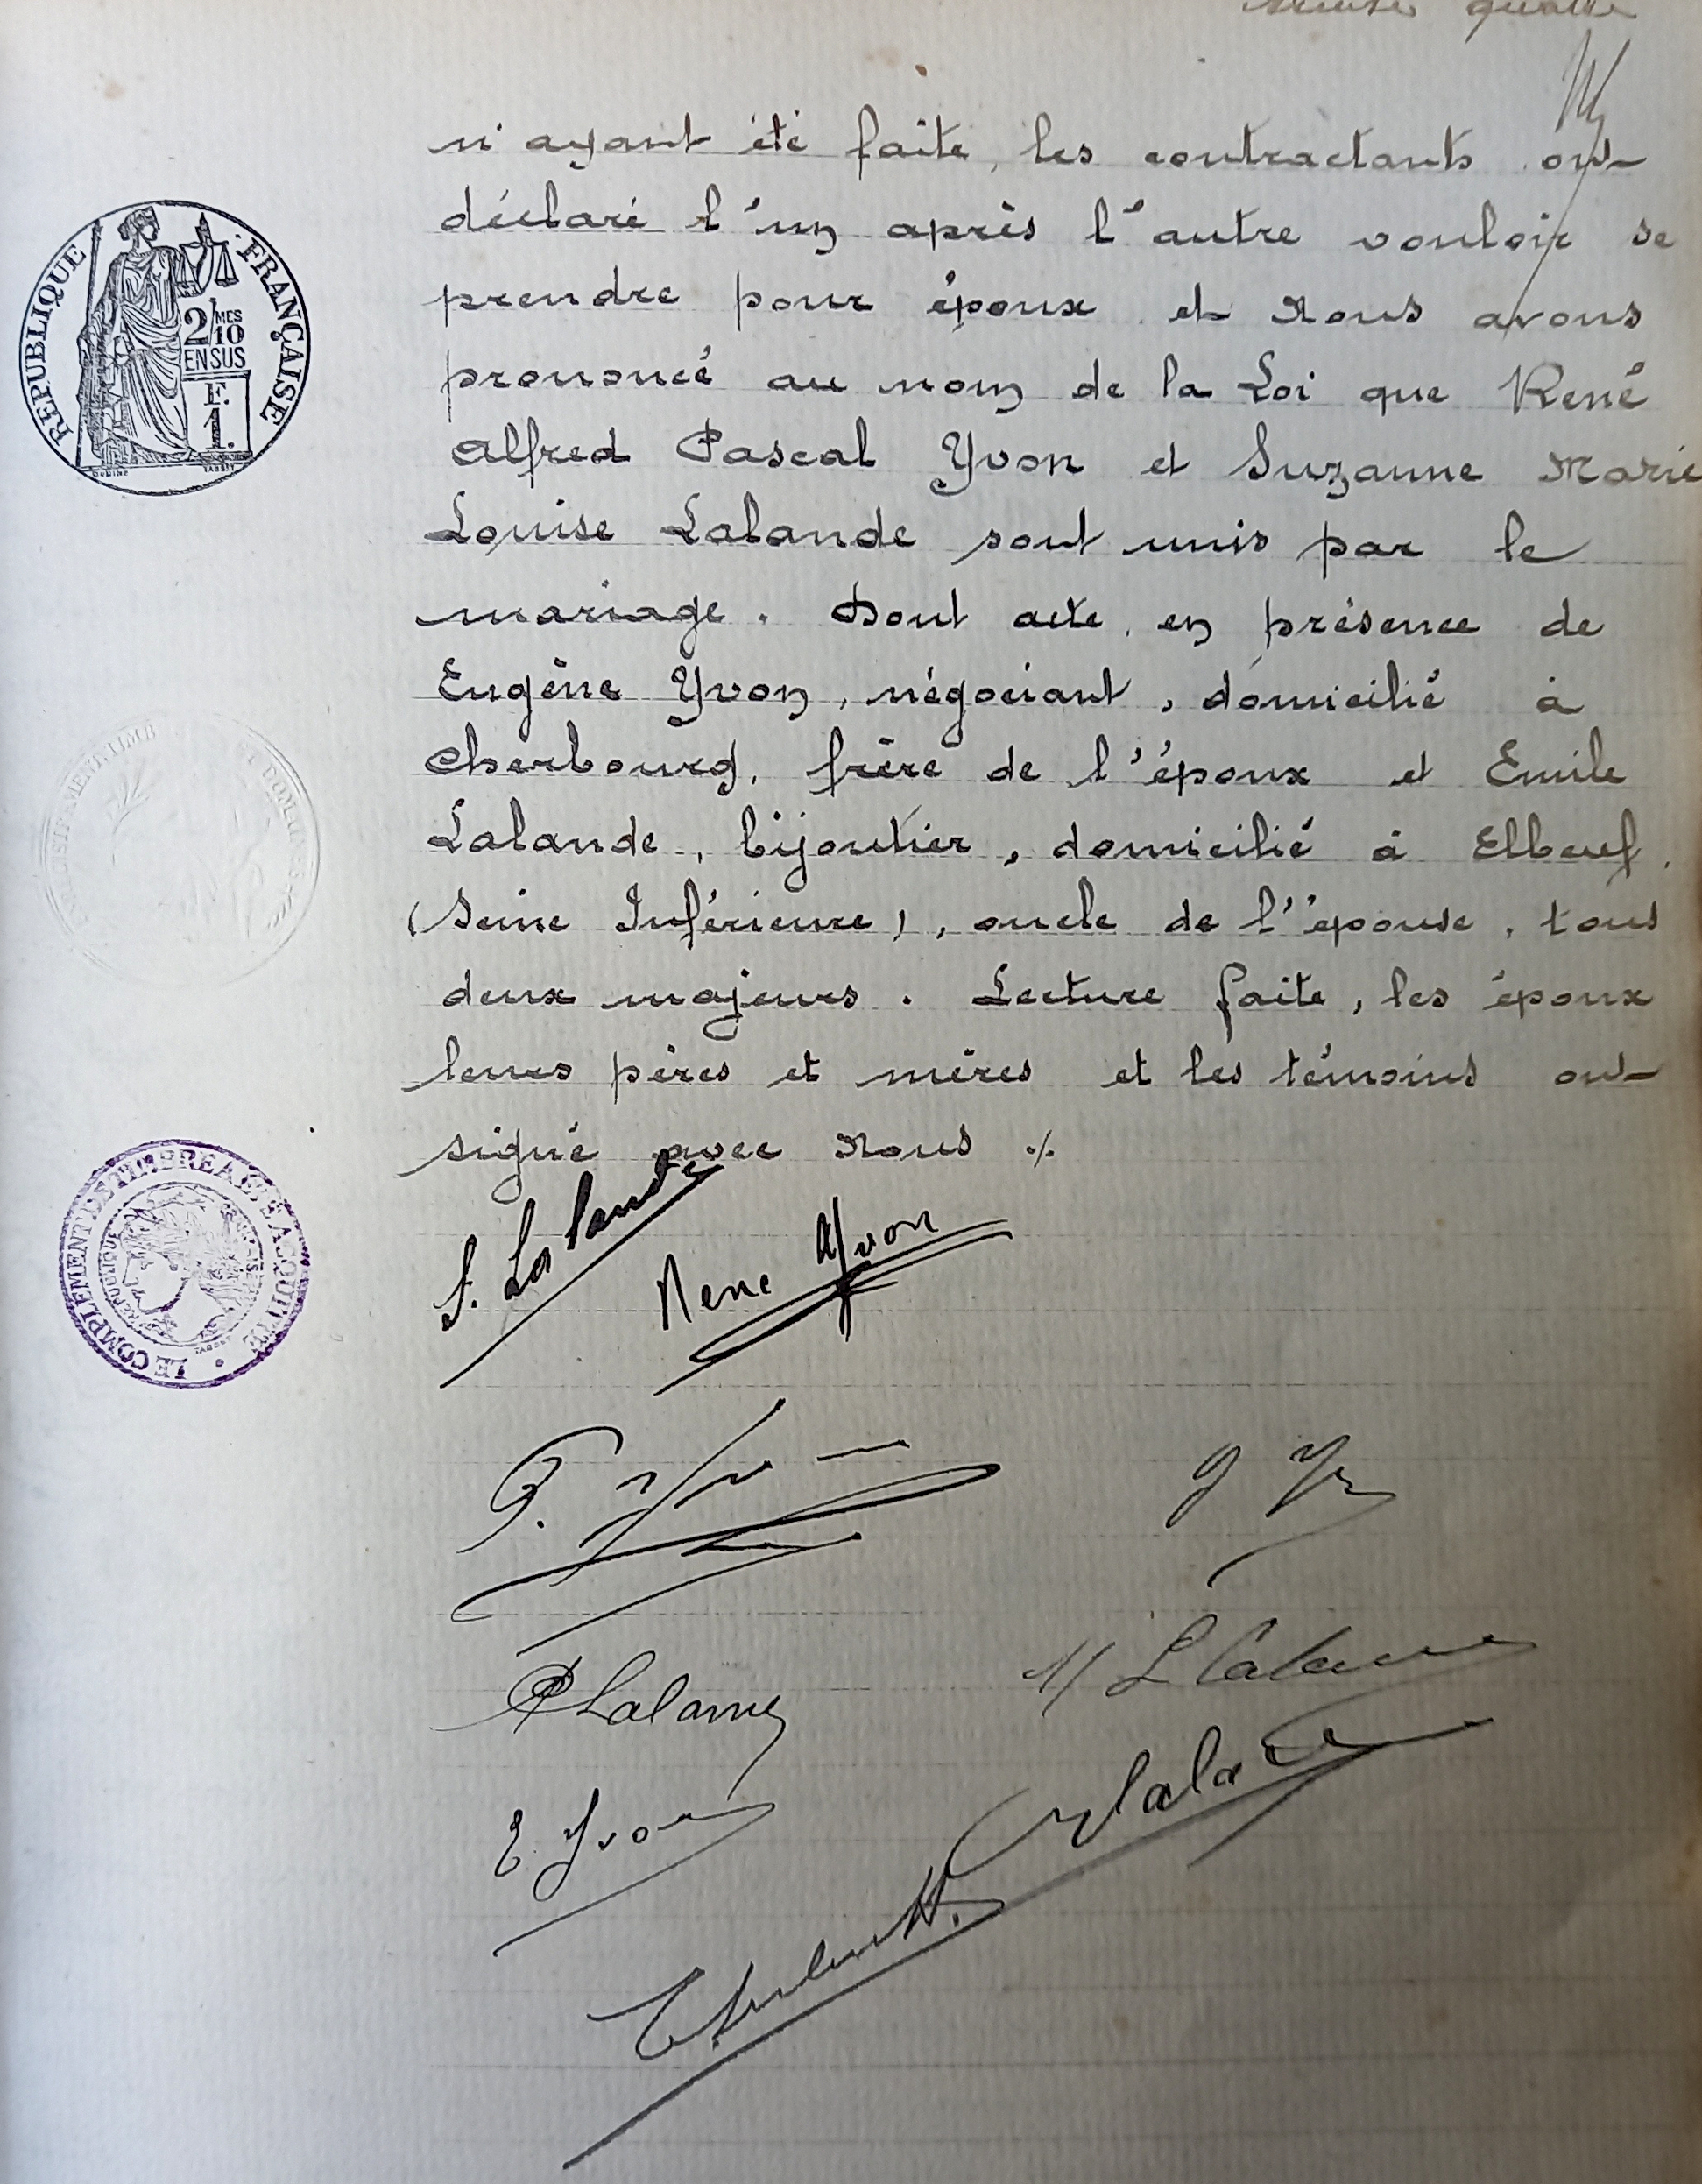 quatre
n'ayant été faite, les contractants ont
déclaré l'un après l'autre vouloir se
prendre pour époux et Nous avons
prononcé au nom de la Loi que René
Alfred Pascal Yvon et Suzanne Marie
Louise Lalande sont unis par le
mariage. Dont acte, en présence de
Eugène Yvon, négociant, domicilié à
Cherbourg, frère de l'époux et Emile
Lalande, bijoutier, domicilié à Elbeuf
(Seine Inférieure), oncle de l'épouse, tous
deux majeurs. Lecture faite, les époux
leurs pères et mères et les témoins ont
signé avec Nous ./.
REPUBLIQUE FRANÇAISE
2/10 MES
EN SUS
F.
1.
LE COMPLEMENT DE TIMBRE A ETE ACQUITTE
REPUBLIQUE
S. Lalande
René Yvon
E. Yvon